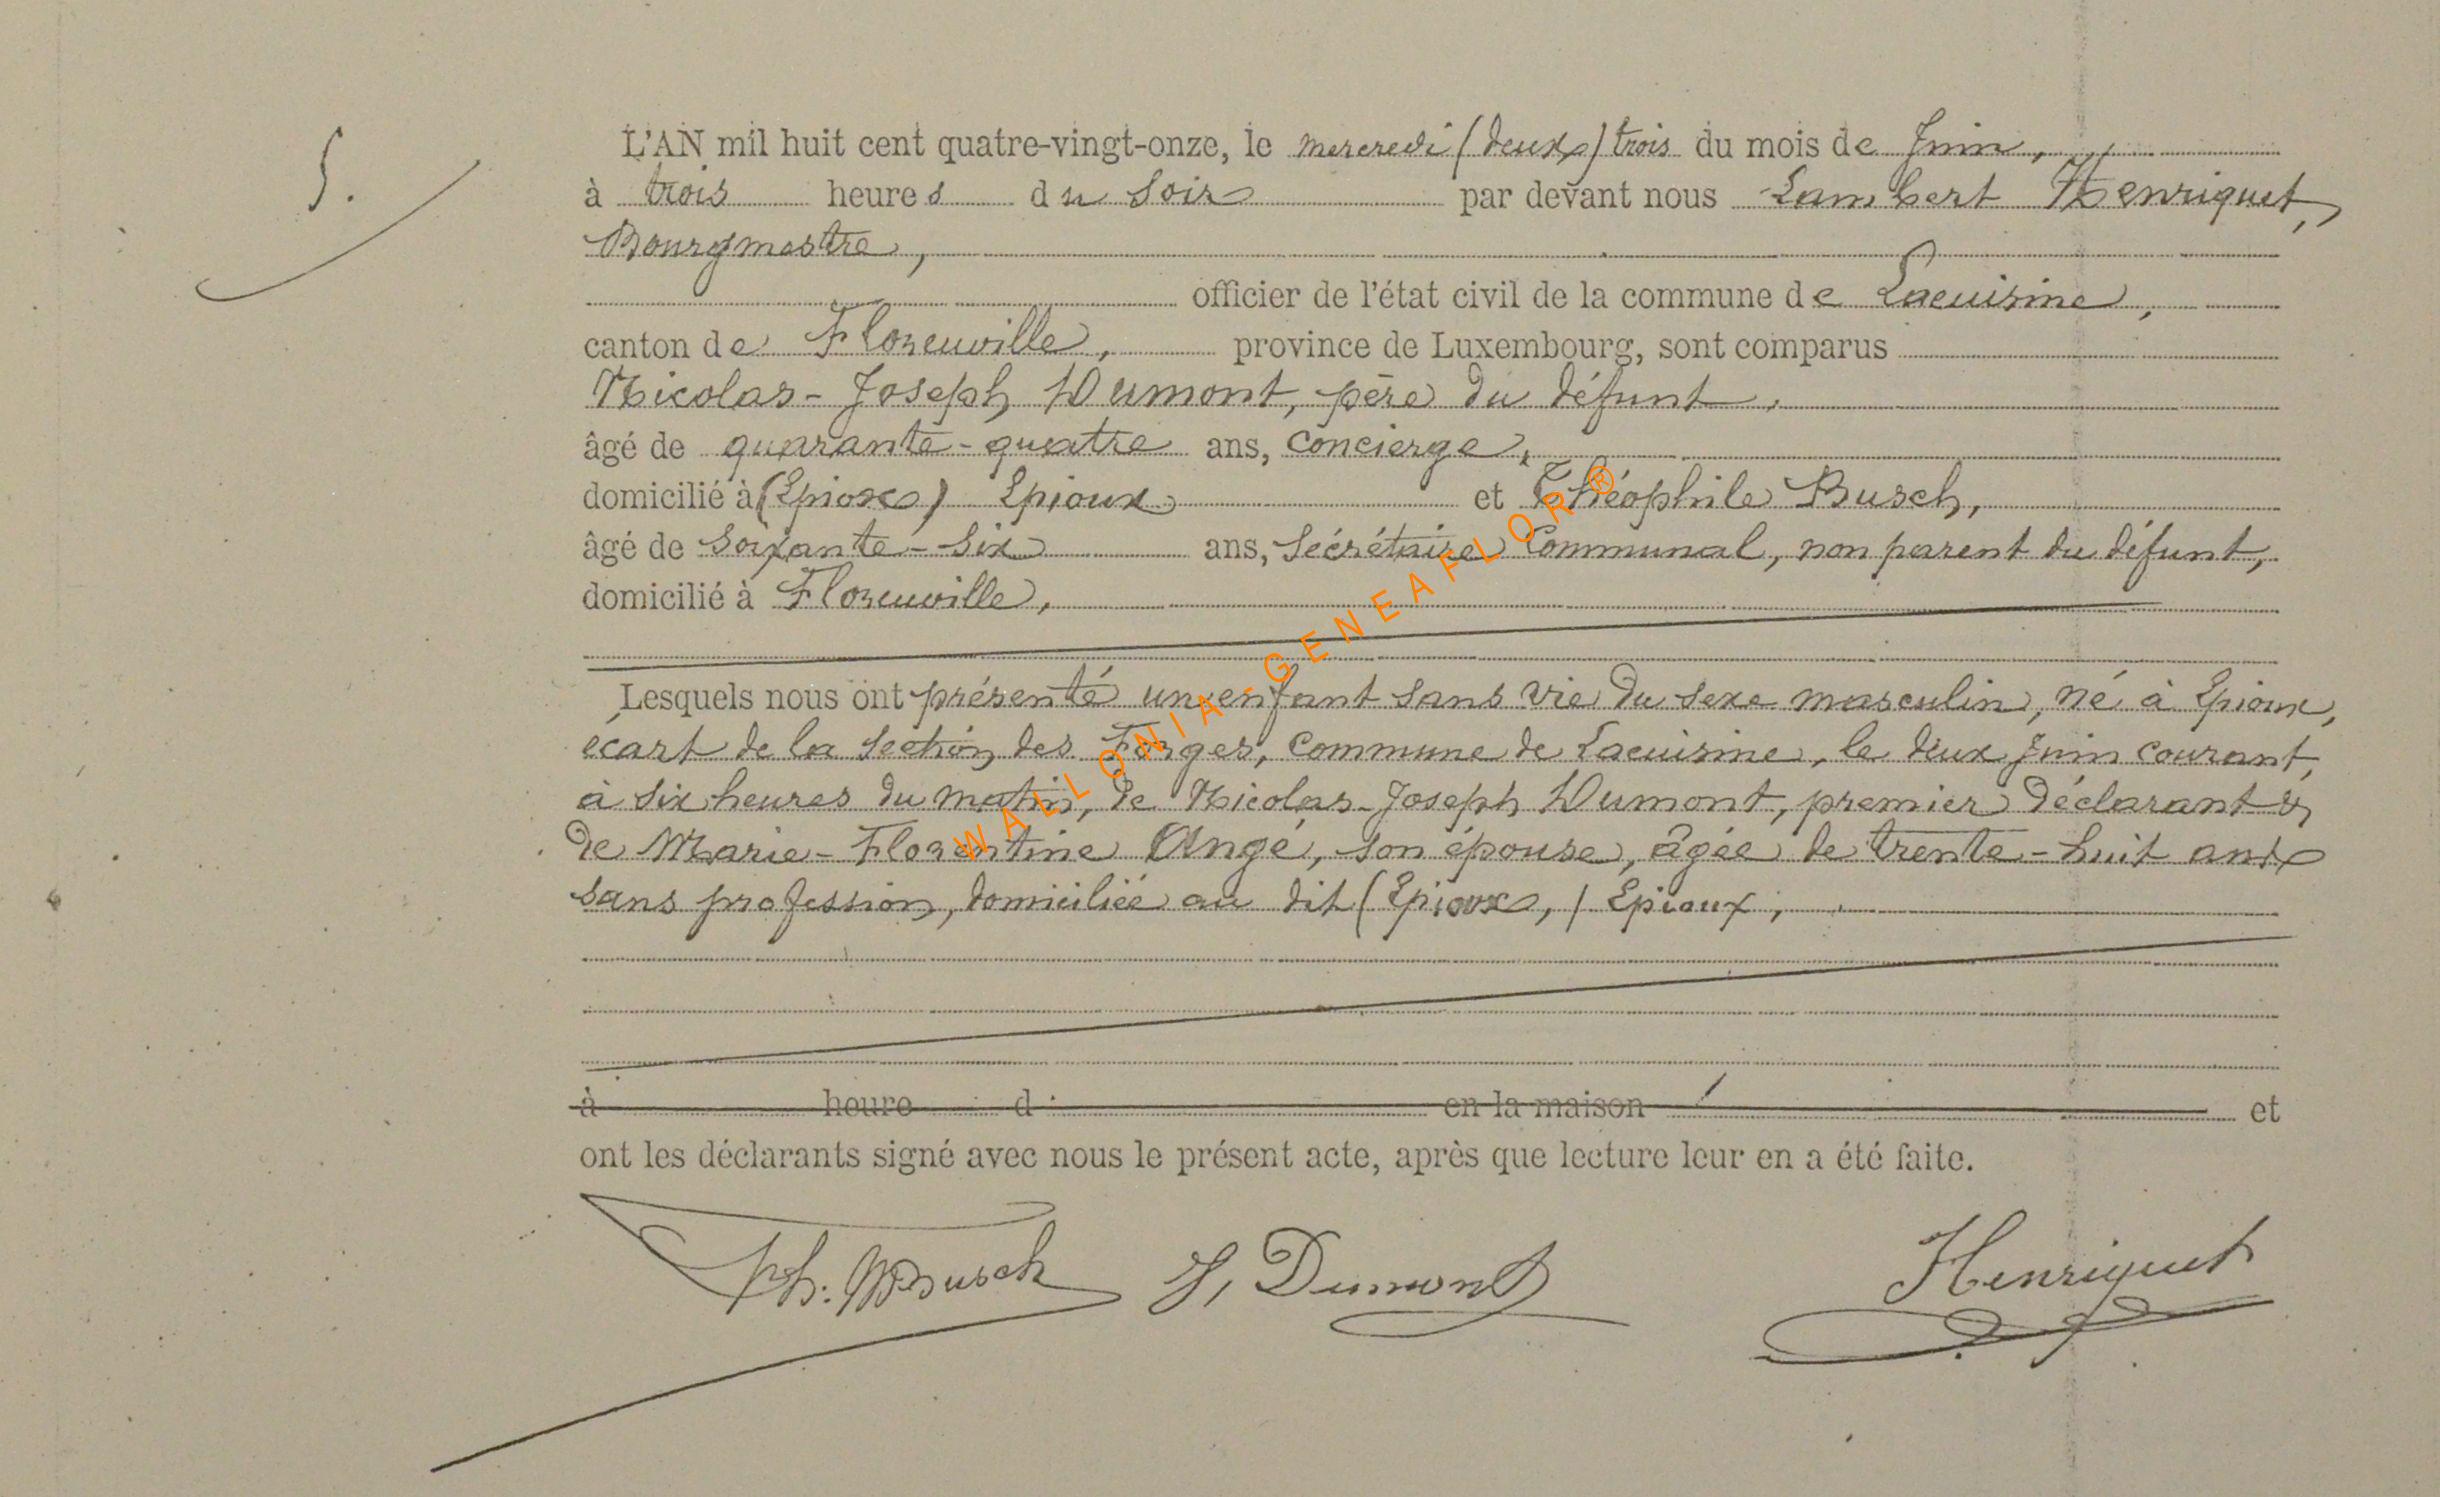 5.
L'AN mil huit cent quatre-vingt-onze, le mercredi (deux) trois du mois de Juin,
à trois heures du soir par devant nous Lambert Henriquet,
Bourgmestre,
officier de l'état civil de la commune de Lacuisine,
canton de Florenville, province de Luxembourg, sont comparus
Nicolas-Joseph Dumont, père du défunt,
âgé de quarante-quatre ans, concierge,
domicilié à (Epioxe) Epioux et Théophile Busch,
âgé de soixante-six ans, Sécrétaire Communal, non parent du défunt,
domicilié à Florenville,
Lesquels nous ont présenté un enfant sans vie du sexe masculin, né à Epioux,
écart de la section des Forges, commune de Lacuisine, le deux Juin courant,
à six heures du matin, de Nicolas-Joseph Dumont, premier déclarant &
de Marie-Florentine Angé, son épouse, âgée de trente-huit ans
sans profession, domiciliée au dit (Epioxe,) Epioux,
à heure d en la maison et
ont les déclarants signé avec nous le présent acte, après que lecture leur en a été faite.
Th. Busch J, Dumont Henriquet
WALLONIA-GENEAFLOR®